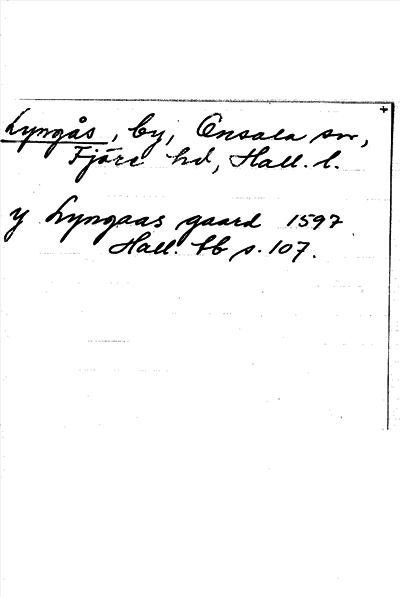 +
Lyngås, by, Onsala sn,
Fjäre hd, Hall. l.
y Lyngaas gaard 1597
Hall. tb s. 107.